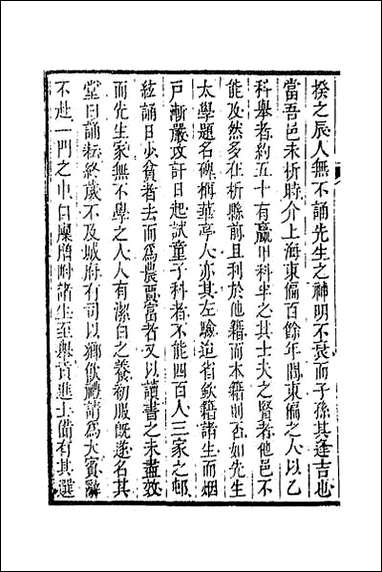 揆之辰人無不誦先生之神明不衰而子孫其逢吉也
當吾邑未析時介上海東偏百餘年間東偏之人以乙
科舉者約五十有贏甲科半之其士大夫之賢者他邑不
能及然多在析縣前且利於他籍而本籍則否如先生
太學題名碑稱華亭人亦其左驗迨省歙籍諸生而烟
戸漸嚴攻計日起試童子科者不能四百人三家之邨
絃誦日少貧者去而為農賈富者又以讀書之未盡效
而先生家無不學之人人有潔白之養初服既遂名其
堂曰誦耘終歲不及城府有司以鄉飲禮請為大賓辭
不赴一門之中自廩膳附諸生至舉貢進士備有其選